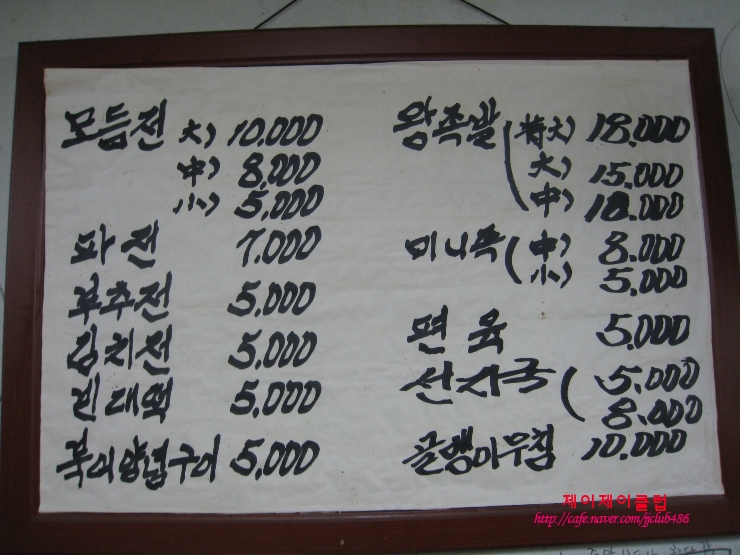 모듬전 大) 10.000
中) 8,000
小) 5,000
파전 7.000
부추전 5,000
김치전 5,000
빈대떡 5,000
북어양념구이 5,000
왕족발 (特大) 18.000
大) 15.000
中) 10.000
미니족 (中) 8.000
小) 5,000
편육 5,000
선지국 ( 5.000
8,000
골뱅이무침 10,000
제이제이클럽
http://cafe.naver.com/jjclub486